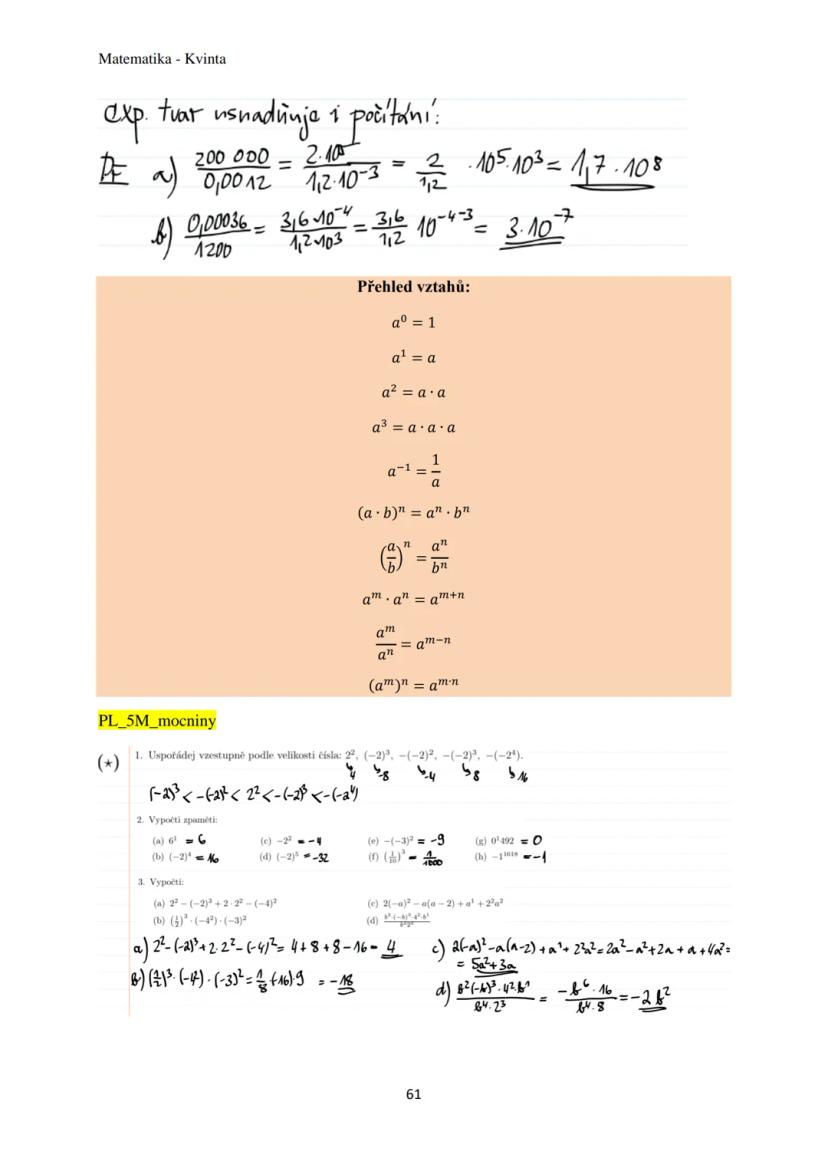 Matematika - Kvinta
exp. tvar usnadňuje i počítání:
PŘ a) 200 000 / 0,0012 = 2·10⁵ / 1,2·10⁻³ = 2 / 1,2 · 10⁵·10³ = 1,7 · 10⁸
b) 0,00036 / 1200 = 3,6·10⁻⁴ / 1,2·10³ = 3,6 / 1,2 10⁻⁴⁻³ = 3·10⁻⁷
Přehled vztahů:
a⁰ = 1
a¹ = a
a² = a · a
a³ = a · a · a
a⁻¹ = 1/a
(a · b)ⁿ = aⁿ · bⁿ
(a/b)ⁿ = aⁿ/bⁿ
aᵐ · aⁿ = aᵐ⁺ⁿ
aᵐ/aⁿ = aᵐ⁻ⁿ
(aᵐ)ⁿ = aᵐ·ⁿ
PL_5M_mocniny
(⋆) 1. Uspořádej vzestupně podle velikosti čísla: 2², (−2)³, −(−2)², −(−2)³, −(−2⁴).
↳4 ↳-8 ↳-4 ↳8 ↳16
(-2)³ < -(-2)² < 2² < -(-2)³ < -(-2⁴)
2. Vypočti zpaměti:
(a) 6¹ = 6 (c) −2² = -4 (e) −(−3)² = -9 (g) 0¹492 = 0
(b) (−2)⁴ = 16 (d) (−2)⁵ = -32 (f) (1/10)³ = 1/1000 (h) −1¹⁶¹⁸ = -1
3. Vypočti:
(a) 2² − (−2)³ + 2 · 2² − (−4)² (c) 2(−a)² − a(a − 2) + a¹ + 2²a²
(b) (1/2)³ · (−4²) · (−3)² (d) b²·(−b)³·4²·b¹ / b⁴2³
a) 2²-(-2)³+2·2²-(-4)² = 4+8+8-16 = 4 c) 2(-a)²-a(a-2)+a¹+2²a² = 2a²-a²+2a+a+4a² =
= 5a²+3a
b) (1/2)³·(-4²)·(-3)² = 1/8 (-16) 9 = -18
d) b²(-b)³·4²·b¹ / b⁴·2³ = -b⁶·16 / b⁴·8 = -2b²
61